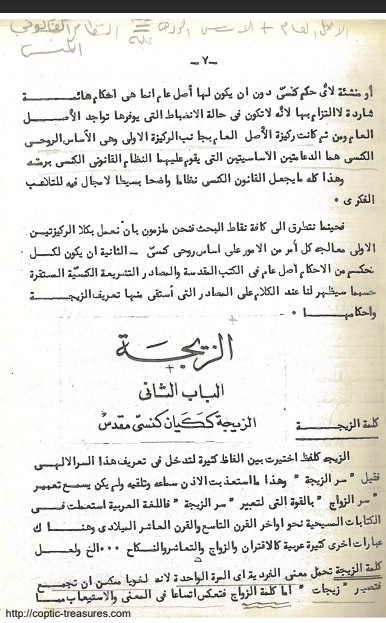 الاصل العام + الاسس الروحى = النظام القانونى
عليه الكنسى
-٧-
أو منشئة لأى حكم كنسى دون ان يكون لها أصل عام انما هى احكام هائمــة
شاردة لا التزام بها لأنه لا تكون فى حالة الانضباط التى يوفرها تواجد الأصــل
العام ومن ثم كانت ركيزة الأصل العام بجانب الركيزة الاولى وهى الأساس الروحى
الكنسى هما الدعامتين الاساسيتين التى يقوم عليهما النظام القانونى الكنسى برمته
وهذا كله مايجعل القانون الكنسى نظاما واضحا بسيطا لا مجال فيه للتلاعب
الفكرى ٠
فحينما نتطرق الى كافة نقاط البحث فنحن ملزمون بان نعمل بكلا الركيزتين
الاولى معالجة كل أمر من الامور على اساس روحى كنسى – الثانية ان يكون لكــل
حكم من الاحكام اصل عام فى الكتب المقدسة والمصادر التشريعة الكنسية المستقرة
حسبما سيظهر لنا عند الكلام على المصادر التى أستقى منها تعريف الزيجــة
واحكامهــا ٠
الزيجــة
الباب الثانى
الزيجة ككيان كنسى مقدس
كلمة الزيجــة
الزيجه كلفظ اختيرت بين الفاظ كثيرة لتدخل فى تعريف هذا السر الالهى
فقيل " سر الزيجة " وهذا ما استعذبت الاذن سماعه وتلقيه ولم يكن يسمح تعبير
" سر الزواج " بالقوة التى لتعبير " سر الزيجة " فاللغة العربية استعملت فــى
الكتابات المسيحية نحو اواخر القرن التاسع والقرن العاشر الميلادى وهنــاك
عبارات أخرى كثيرة عربية كالاقتران والزواج والتعاشر والنكاح ٠٠٠الخ ولعــل
كلمة الزيجة تحمل معنى الفردية اى المرة الواحدة لانه لغويا ممكن ان تجمــع
فتصير " زيجات " اما كلمة الزواج فتعكس اتساعا فى المعنى والاستيعاب ممــا
http://coptic-treasures.com